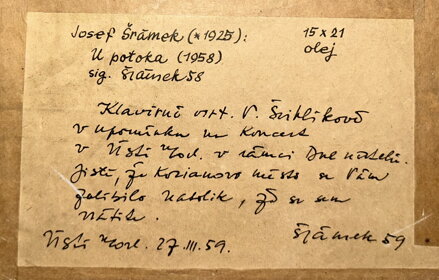 Josef Šrámek (*1925): 15 x 21
U potoka (1958) olej
sig. Šrámek 58
Klavírní virt. V. Švihlíkové
v upomínku na koncert
v Ústí n/orl. v rámci Dne učitelů.
Jistě, že Kozianovo město se Vám
zalíbilo natolik, že se sem
vrátíte.
Ústí n/orl. 27.III.59. Šrámek 59